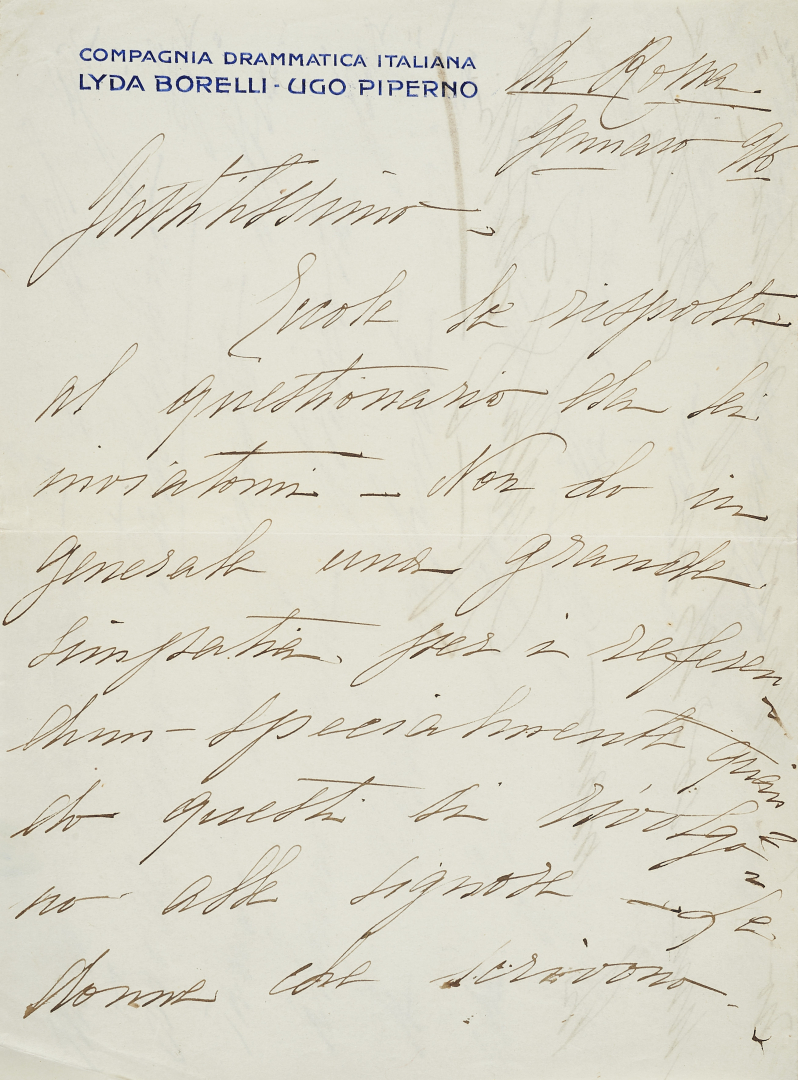 COMPAGNIA DRAMMATICA ITALIANA
LYDA BORELLI - UGO PIPERNO
da Roma.
Gennaro
Gentilissimo -
Eccole le risposte
al questionario da lei
inviatomi - Non ho in
generale una grande
simpatia per i referen
dum - specialmente quan
do questi si rivolgo
no alle signore - Le
donne che scrivono -